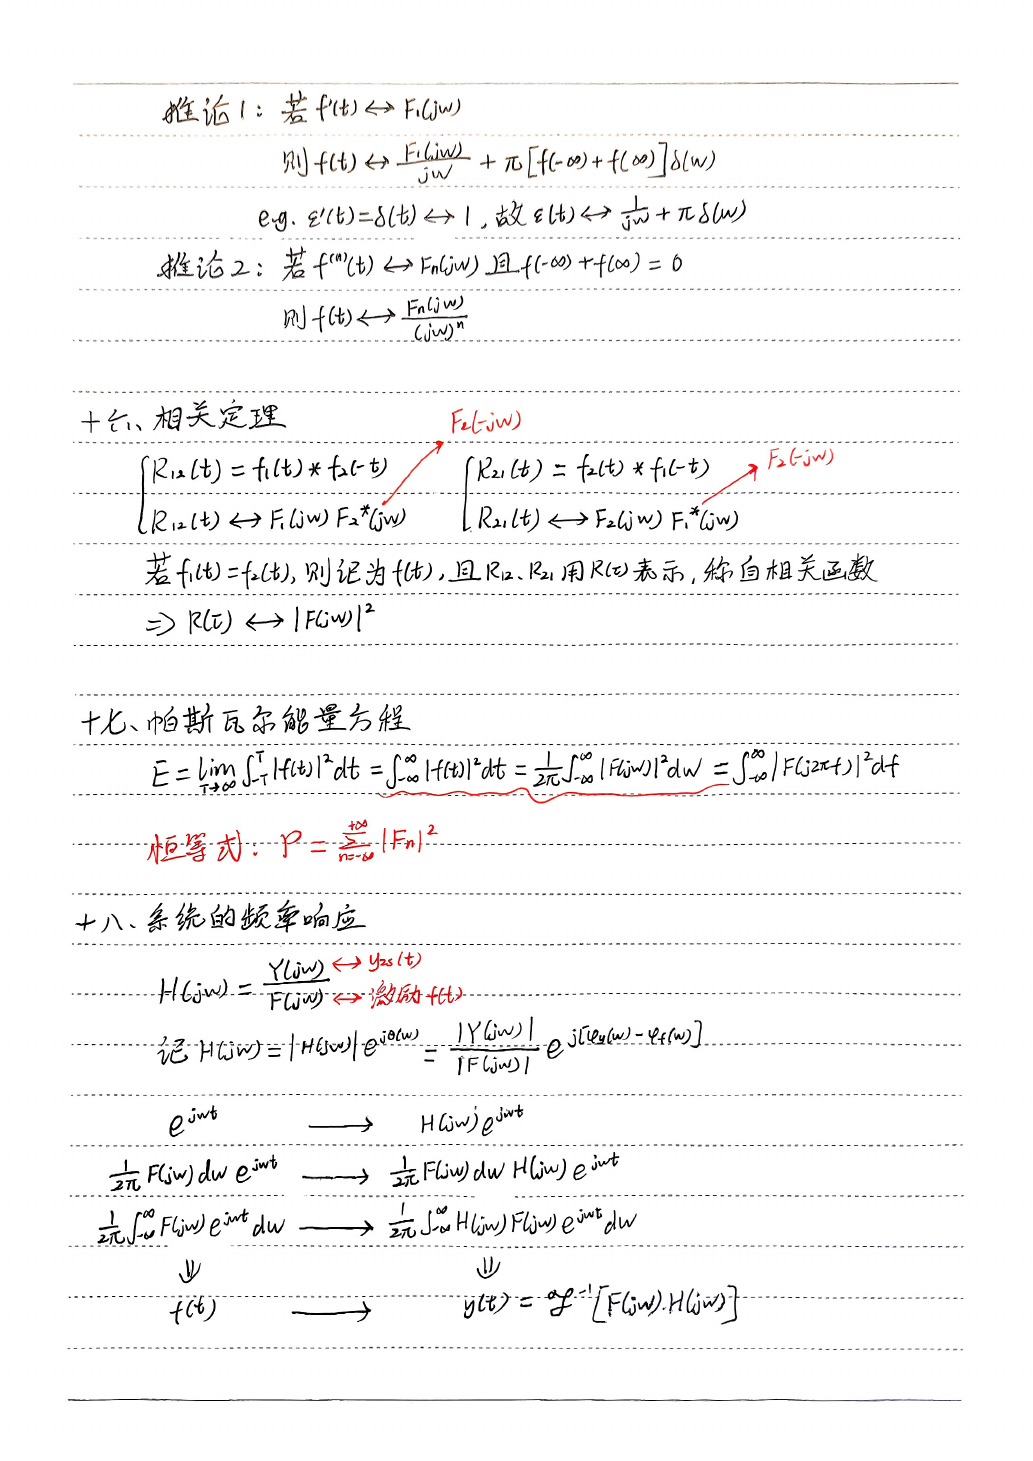 推论1: 若 f'(t) ↔ F₁(jw)
则 f(t) ↔ F₁(jw)/jw + π[f(-∞)+f(∞)]δ(w)
e.g. ε'(t)=δ(t) ↔ 1, 故 ε(t) ↔ 1/jw + πδ(w)
推论2: 若 f⁽ⁿ⁾(t) ↔ Fn(jw) 且 f(-∞)+f(∞) = 0
则 f(t) ↔ Fn(jw)/(jw)ⁿ
十六、相关定理
F₂(-jw)
F₂(-jw)
{R₁₂(t) = f₁(t) * f₂(-t) {R₂₁(t) = f₂(t) * f₁(-t)
R₁₂(t) ↔ F₁(jw) F₂*(jw) R₂₁(t) ↔ F₂(jw) F₁*(jw)
若 f₁(t)=f₂(t), 则记为 f(t), 且 R₁₂、R₂₁ 用 R(τ) 表示, 称自相关函数
⇒ R(τ) ↔ |F(jw)|²
十七、帕斯瓦尔能量方程
E = lim T→∞ ∫₋T^T |f(t)|²dt = ∫₋∞^∞ |f(t)|²dt = 1/2π ∫₋∞^∞ |F(jw)|²dw = ∫₋∞^∞ |F(j2πf)|²df
恒等式: P = Σ n=-∞ +∞ |Fn|²
十八、系统的频率响应
H(jw) = Y(jw)/F(jw) ↔ yzs(t)
↔ 激励 f(t)
记 H(jw) = |H(jw)| e^jθ(w) = |Y(jw)|/|F(jw)| e^j[φy(w) - φf(w)]
e^jwt → H(jw) e^jwt
1/2π F(jw) dw e^jwt → 1/2π F(jw) dw H(jw) e^jwt
1/2π ∫₋∞^∞ F(jw) e^jwt dw → 1/2π ∫₋∞^∞ H(jw) F(jw) e^jwt dw
⇓ ⇓
f(t) → y(t) = ℱ⁻¹[F(jw).H(jw)]